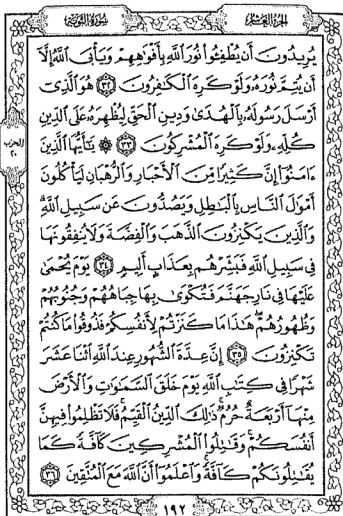 الجزء العاشر
سورة التوبة
يُرِيدُونَ أَن يُطْفِـُٔوا۟ نُورَ ٱللَّهِ بِأَفْوَٰهِهِمْ وَيَأْبَى ٱللَّهُ إِلَّآ
أَن يُتِمَّ نُورَهُۥ وَلَوْ كَرِهَ ٱلْكَٰفِرُونَ ٣٢ هُوَ ٱلَّذِىٓ
أَرْسَلَ رَسُولَهُۥ بِٱلْهُدَىٰ وَدِينِ ٱلْحَقِّ لِيُظْهِرَهُۥ عَلَى ٱلدِّينِ
كُلِّهِۦ وَلَوْ كَرِهَ ٱلْمُشْرِكُونَ ٣٣ ۞ يَٰٓأَيُّهَا ٱلَّذِينَ
ءَامَنُوٓا۟ إِنَّ كَثِيرًا مِّنَ ٱلْأَحْبَارِ وَٱلرُّهْبَانِ لَيَأْكُلُونَ
أَمْوَٰلَ ٱلنَّاسِ بِٱلْبَٰطِلِ وَيَصُدُّونَ عَن سَبِيلِ ٱللَّهِ ۗ
وَٱلَّذِينَ يَكْنِزُونَ ٱلذَّهَبَ وَٱلْفِضَّةَ وَلَا يُنفِقُونَهَا
فِى سَبِيلِ ٱللَّهِ فَبَشِّرْهُم بِعَذَابٍ أَلِيمٍ ٣٤ يَوْمَ يُحْمَىٰ
عَلَيْهَا فِى نَارِ جَهَنَّمَ فَتُكْوَىٰ بِهَا جِبَاهُهُمْ وَجُنُوبُهُمْ
وَظُهُورُهُمْ ۖ هَٰذَا مَا كَنَزْتُمْ لِأَنفُسِكُمْ فَذُوقُوا۟ مَا كُنتُمْ
تَكْنِزُونَ ٣٥ إِنَّ عِدَّةَ ٱلشُّهُورِ عِندَ ٱللَّهِ ٱثْنَا عَشَرَ
شَهْرًا فِى كِتَٰبِ ٱللَّهِ يَوْمَ خَلَقَ ٱلسَّمَٰوَٰتِ وَٱلْأَرْضَ
مِنْهَآ أَرْبَعَةٌ حُرُمٌ ۚ ذَٰلِكَ ٱلدِّينُ ٱلْقَيِّمُ ۚ فَلَا تَظْلِمُوا۟ فِيهِنَّ
أَنفُسَكُمْ ۚ وَقَٰتِلُوا۟ ٱلْمُشْرِكِينَ كَآفَّةً كَمَا
يُقَٰتِلُونَكُمْ كَآفَّةً ۚ وَٱعْلَمُوٓا۟ أَنَّ ٱللَّهَ مَعَ ٱلْمُتَّقِينَ ٣٦
الحزب
٢٠
١٩٢